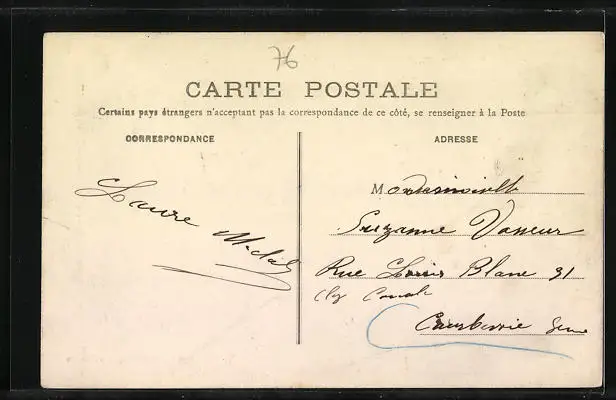 76
CARTE POSTALE
Certains pays étrangers n'acceptent pas la correspondance de ce côté, se renseigner à la Poste
CORRESPONDANCE
ADRESSE
Laure
Mademoiselle
Suzanne Vasseur
Rue Louis Blanc 31
Courbevoie Seine